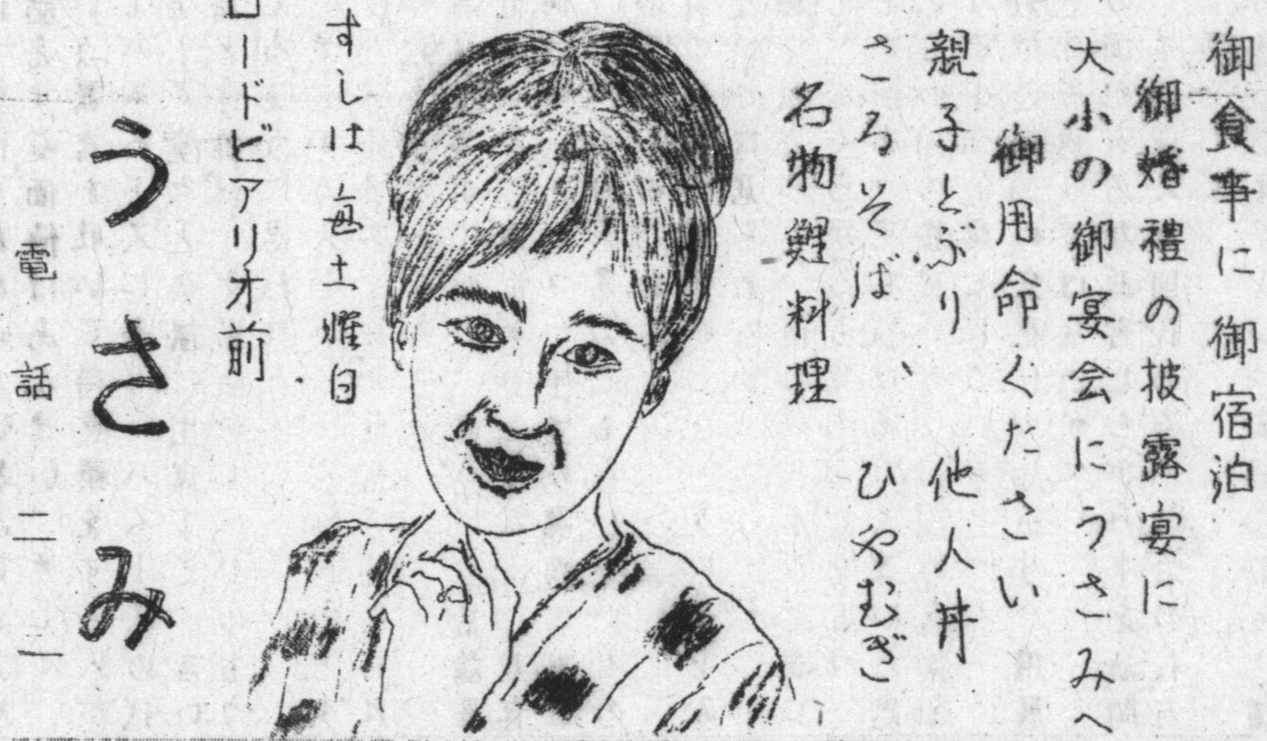 御食事に御宿泊
御婚禮の披露宴に
大小の御宴会にうさみへ
御用命くたさい
親子とぶり 他人丼
さるそば、 ひやむぎ
名物鯉料理
すしは毎土曜日
ロードビアリオ前
うさみ
電話 二二